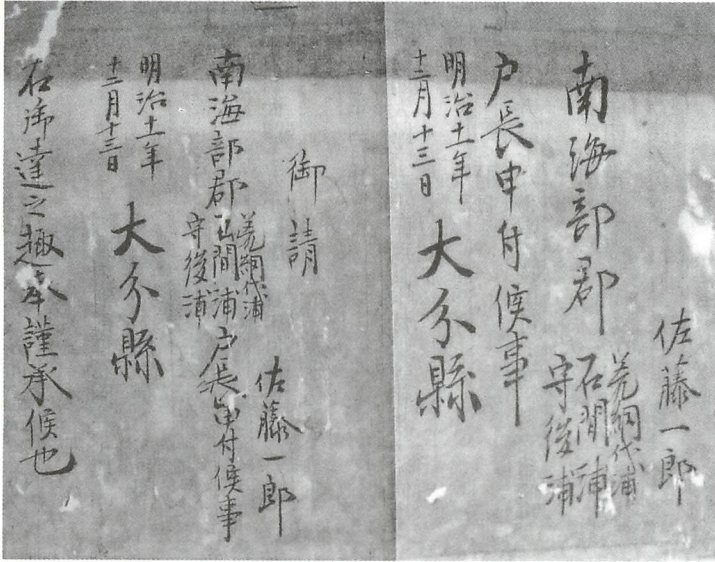 佐藤一郎
南海部郡
荒網代浦
石間浦
守後浦
戸長申付候事
明治十一年
十二月十三日
大分縣
御請
佐藤一郎
南海部郡
荒網代浦
石間浦
守後浦
戸長申付候事
明治十一年
十二月十三日
大分縣
右御達之趣奉謹承候也